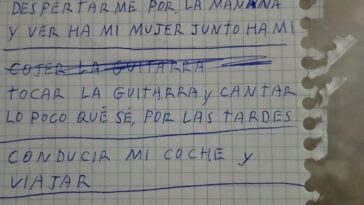 DESPERTARME POR LA MAÑANA
Y VER HA MI MUJER JUNTO HA MI
COJER LA GUITARRA
TOCAR LA GUITARRA y CANTAR
LO POCO QUÉ SÉ, POR LAS TARDES
CONDUCIR MI COCHE y
VIAJAR